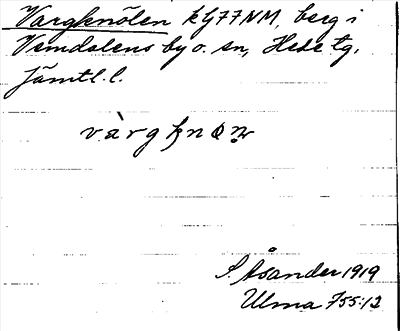 Vargknölen kg77NM, berg i
Vemdalens by o. sn, Hede tg,
Jämtl. l.
S. Åsander 1919
Ulma 755:12